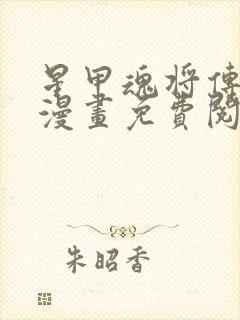 星甲魂将傳
漫畫免費閱
朱昭香